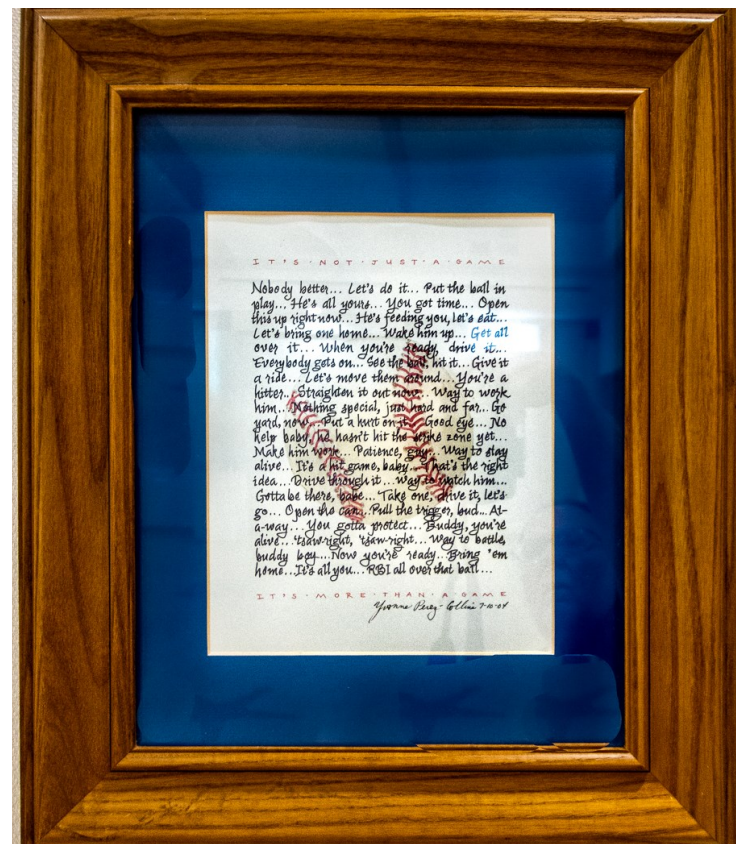 IT'S·NOT·JUST·A·GAME
Nobody better... Let's do it... Put the ball in
play... He's all yours... You got time... Open
this up right now... He's feeding you, let's eat...
Let's bring one home... Wake him up... Get all
over it... When you're ready, drive it...
Everybody gets on... See the ball, hit it... Give it
a ride... Let's move them around... You're a
hitter... Straighten it out now... Way to work
him... Nothing special, just hard and far... Go
yard, now... Put a hurt on it... Good eye... No
help baby, he hasn't hit the strike zone yet...
Make him work... Patience, guy... Way to stay
alive... It's a hit game, baby... That's the right
idea... Drive through it... Way to watch him...
Gotta be there, babe... Take one, drive it, let's
go... Open the can... Pull the trigger, bud... At-
a-way... You gotta protect... Buddy, you're
alive... 'tsaw-right, 'tsaw-right... Way to battle,
buddy boy... Now you're ready... Bring 'em
home... It's all you... RBI all over that ball...
IT'S·MORE·THAN·A·GAME
Yvonne Perez-Collins 7-10-04